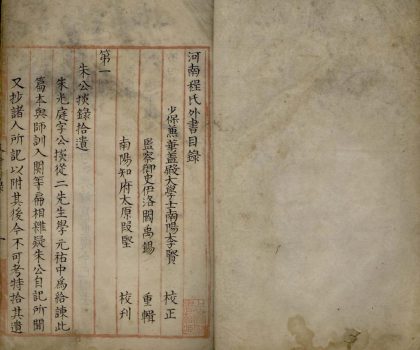 河南程氏外書目錄
少保兼華蓋殿大學士南陽李賢 校正
監察御史伊洛閻禹錫 重輯
南陽知府太原段堅 校刋
第一
朱公掞錄拾遺
朱光庭字公掞從二先生學元祐中爲給諫此
篇本與師訓入關等篇相雜疑朱公自記所聞
又抄諸人所記以附其後今不可考特拾其遺